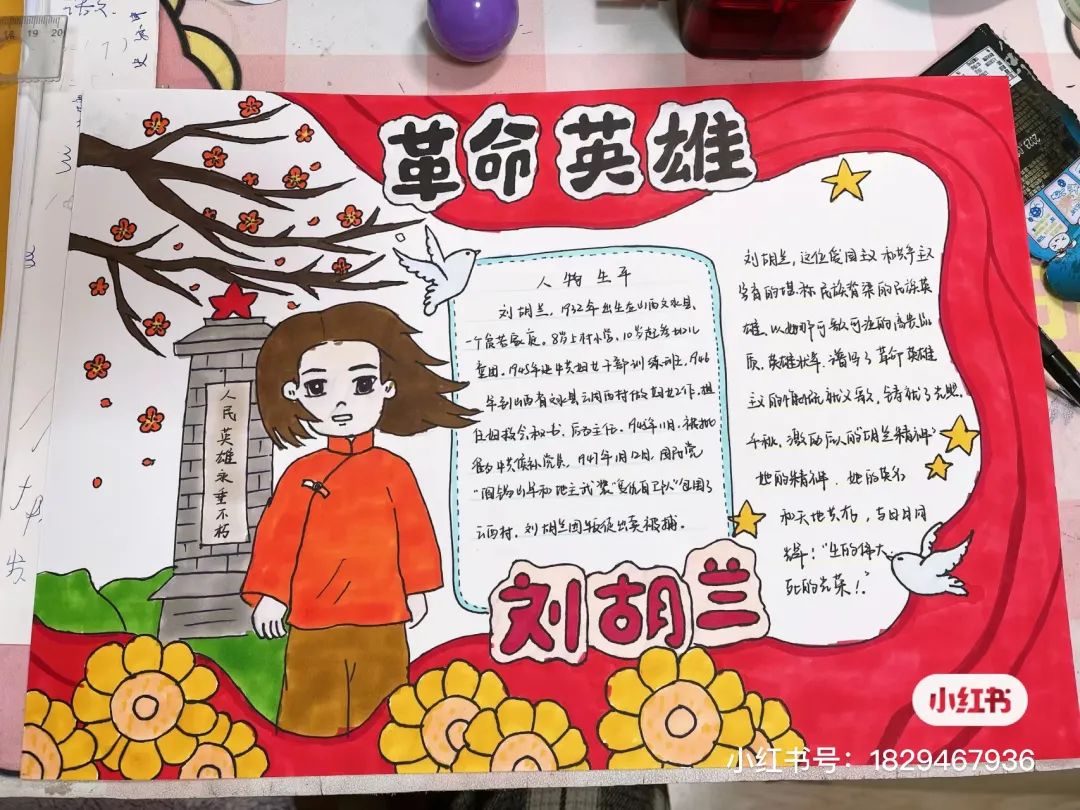 革命英雄
人民英雄永垂不朽
人物生平
刘胡兰,1932年出生在山西文水县,
一个贫苦家庭。8岁上村小学,10岁起参加儿
童团。1945年进中共妇女干部训练班,1946
年到山西省文水县云周西村做妇女工作,担
任妇救会秘书、后主任。1946年11月,被批
为中共候补党员,1947年1月12日,国民党
阎锡山军和地主武装"复仇自卫队"包围了
云西村,刘胡兰因叛徒出卖被捕。
刘胡兰,这位爱国主义和共产主义
的堪称民族脊梁的民族英
雄,以她那可歌可泣的高贵品
质,英雄壮举,谱写了革命英雄
主义的 就义歌,铸就了光照
千秋,激励后人的"胡兰精神"
她的精神,她的英名
和天地共存,与日月同
辉!"生的伟大
死的光荣!"
刘胡兰
小红书
小红书号:1829467936